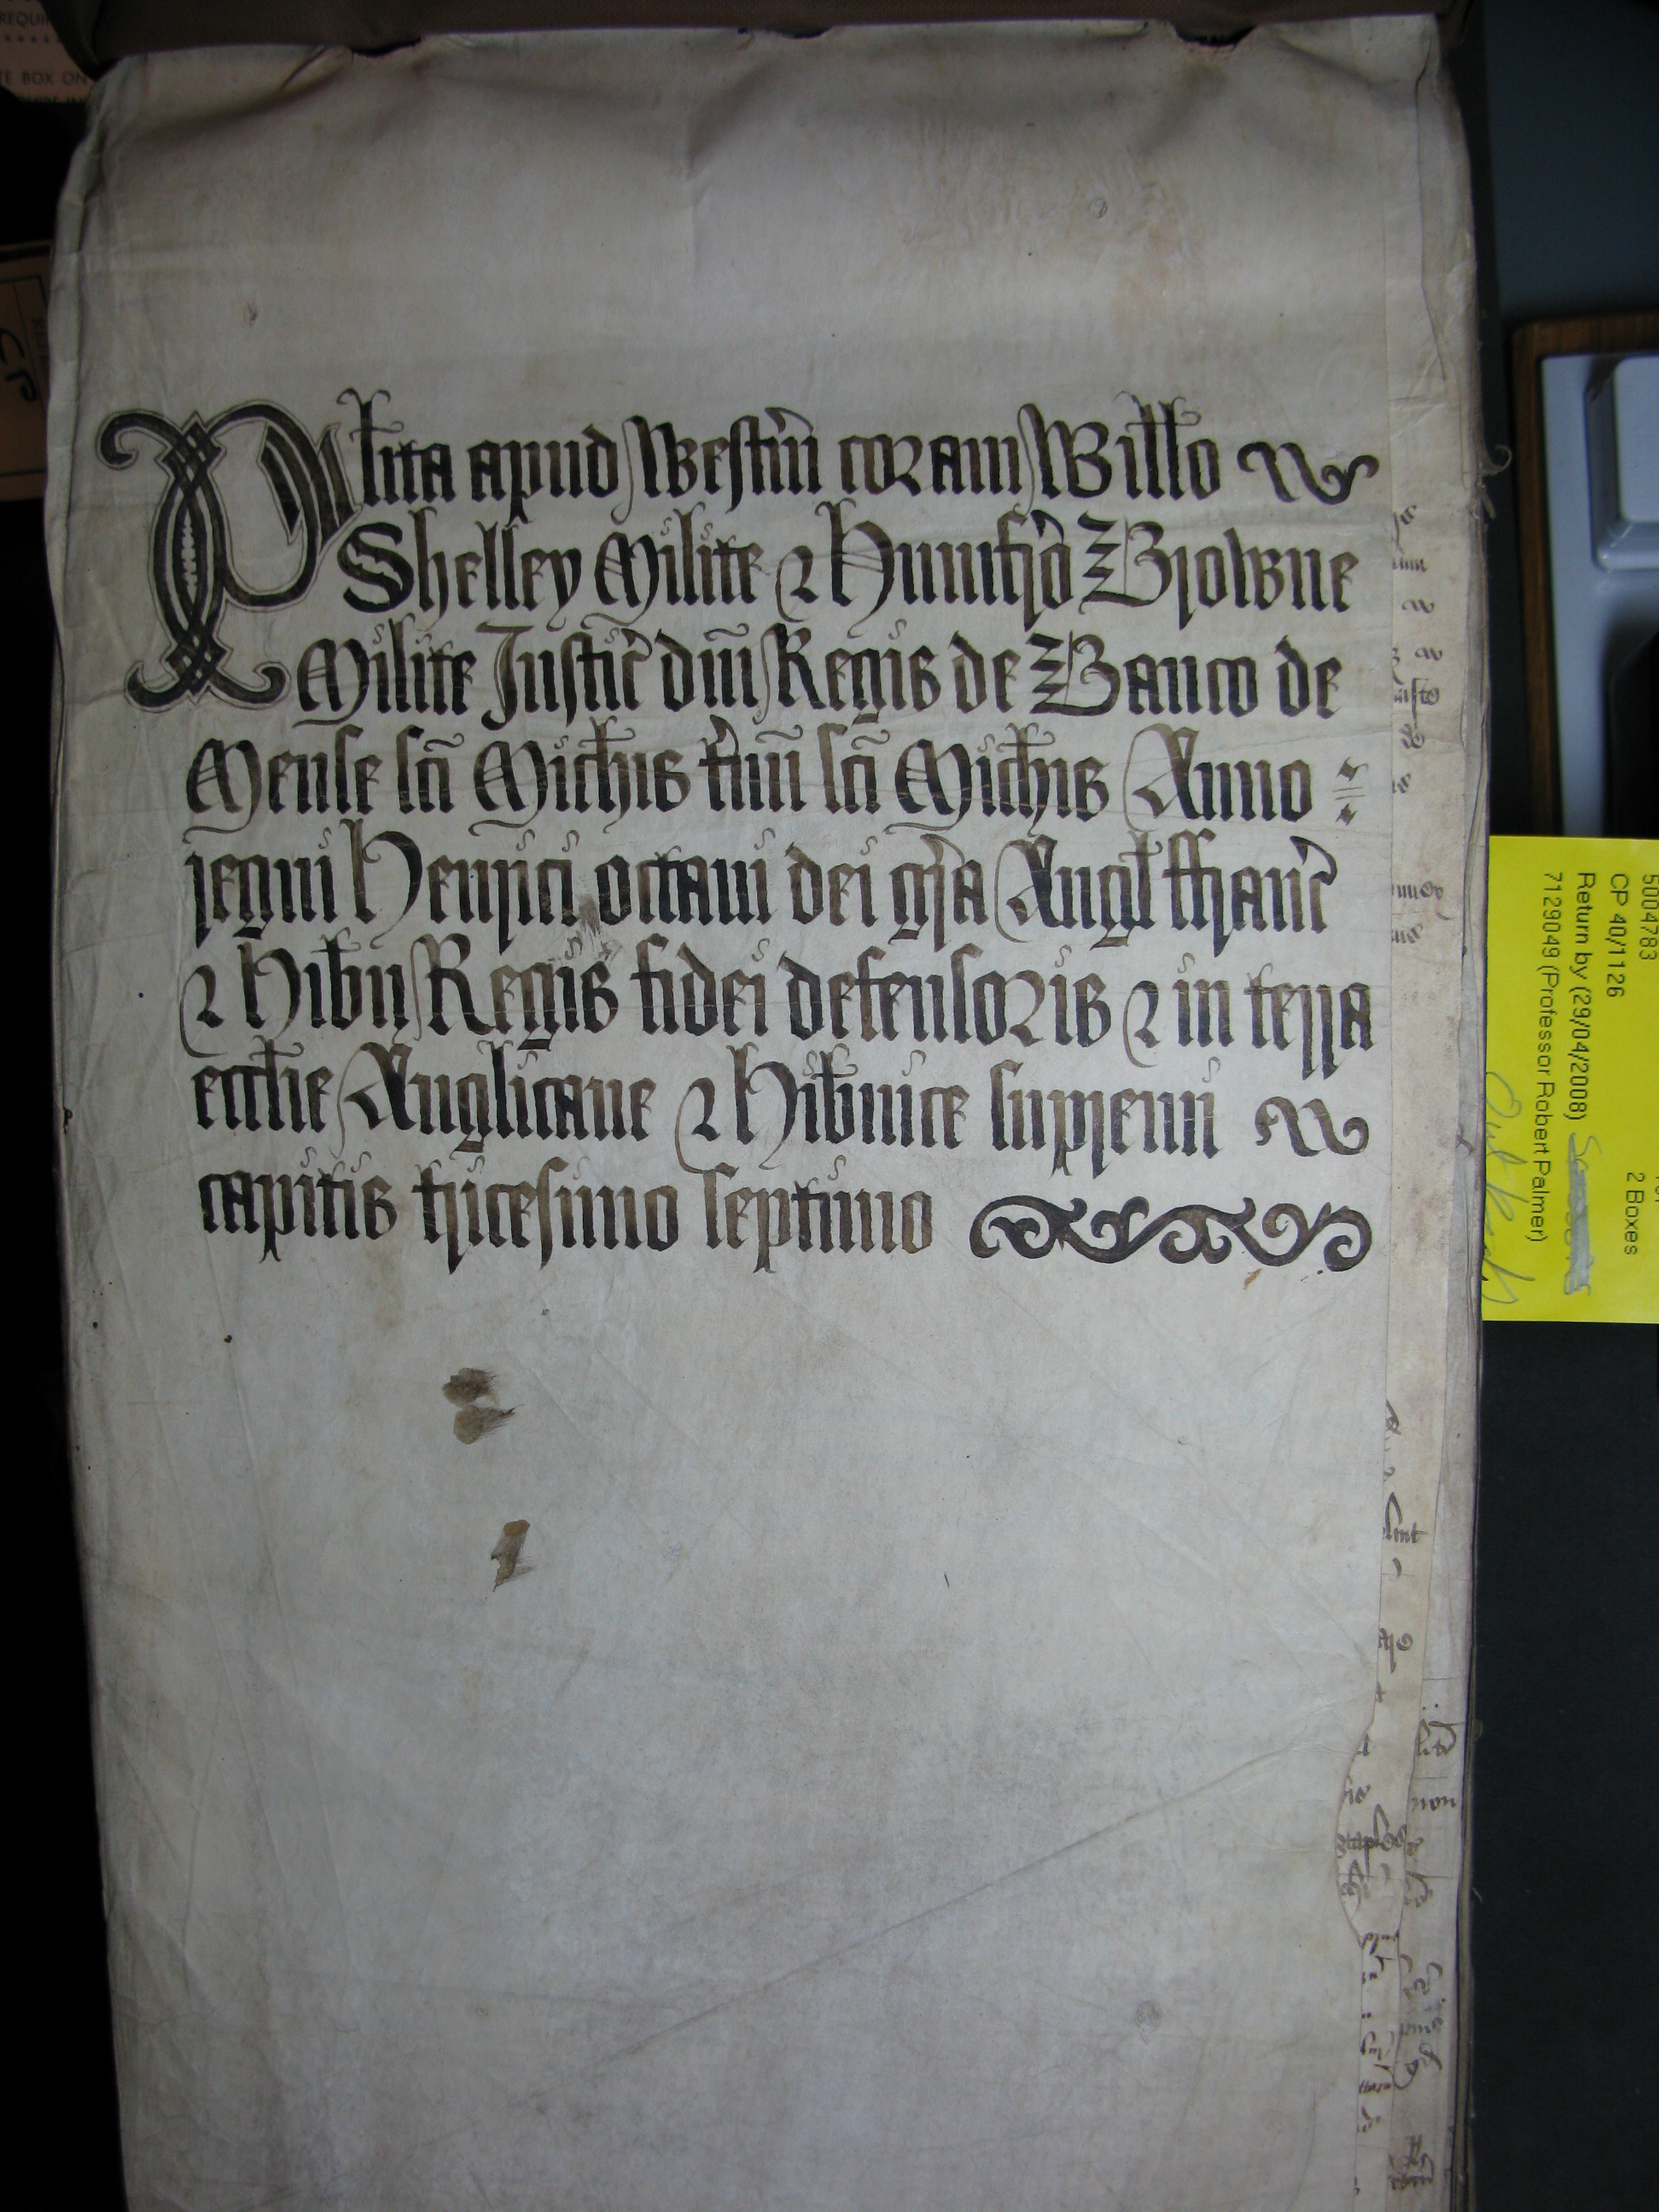 Pl̄ita apud Westm̄ coram Willo
Shelley Milite ⁊ Humfrō Browne
Milite Justic̄ dn̄i Regis de Banco de
Mense sc̄i Mich̄is t̄m̄i sc̄i Mich̄is Anno
regni Henrici octaui dei gr̄a Angl̄ ffranc̄
⁊ Hib̄n Regis fidei defensoris ⁊ in terra
eccl̄ie Anglicane ⁊ Hib̄nice supremi
capitis tricesimo septimo
5004783
CP 40/1126
2 Boxes
Return by (29/04/2008)
7129049 (Professor Robert Palmer)
TE BOX ON